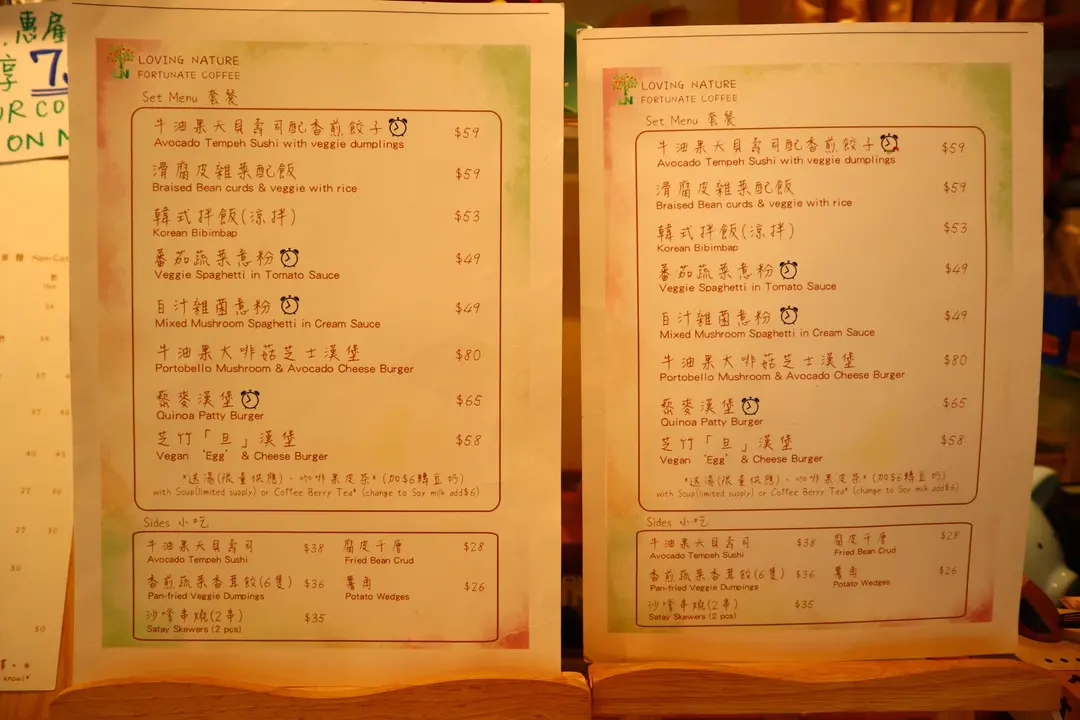 惠顧
享 7.
UR CO
ON M
LOVING NATURE
FORTUNATE COFFEE
Set Menu 套餐
牛油果天貝壽司配香煎餃子 $59
Avocado Tempeh Sushi with veggie dumplings
滑腐皮雜菜配飯 $59
Braised Bean curds & veggie with rice
韓式拌飯(涼拌) $53
Korean Bibimbap
蕃茄蔬菜意粉 $49
Veggie Spaghetti in Tomato Sauce
白汁雜菌意粉 $49
Mixed Mushroom Spaghetti in Cream Sauce
牛油果大啡菇芝士漢堡 $80
Portobello Mushroom & Avocado Cheese Burger
藜麥漢堡 $65
Quinoa Patty Burger
芝竹「旦」漢堡 $58
Vegan 'Egg' & Cheese Burger
*送湯(限量供應)、咖啡果皮茶* (加$6轉豆奶)
with Soup(limited supply) or Coffee Berry Tea* (change to Soy milk add$6)
Sides 小吃
牛油果天貝壽司 $38 腐皮千層 $28
Avocado Tempeh Sushi Fried Bean Crud
香煎蔬菜香茸餃(6隻) $36 薯角 $26
Pan-fried Veggie Dumpings Potato Wedges
沙嗲串燒(2串) $35
Satay Skewers (2 pcs)
LOVING NATURE
FORTUNATE COFFEE
Set Menu 套餐
牛油果天貝壽司配香煎餃子 $59
Avocado Tempeh Sushi with veggie dumplings
滑腐皮雜菜配飯 $59
Braised Bean curds & veggie with rice
韓式拌飯(涼拌) $53
Korean Bibimbap
蕃茄蔬菜意粉 $49
Veggie Spaghetti in Tomato Sauce
白汁雜菌意粉 $49
Mixed Mushroom Spaghetti in Cream Sauce
牛油果大啡菇芝士漢堡 $80
Portobello Mushroom & Avocado Cheese Burger
藜麥漢堡 $65
Quinoa Patty Burger
芝竹「旦」漢堡 $58
Vegan 'Egg' & Cheese Burger
*送湯(限量供應)、咖啡果皮茶* (加$6轉豆奶)
with Soup(limited supply) or Coffee Berry Tea* (change to Soy milk add$6)
Sides 小吃
牛油果天貝壽司 $38 腐皮千層 $28
Avocado Tempeh Sushi Fried Bean Crud
香煎蔬菜香茸餃(6隻) $36 薯角 $26
Pan-fried Veggie Dumpings Potato Wedges
沙嗲串燒(2串) $35
Satay Skewers (2 pcs)